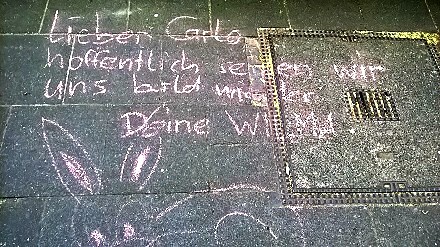 Lieber Carlo
hoffentlich sehen wir
uns bald wieder
Deine